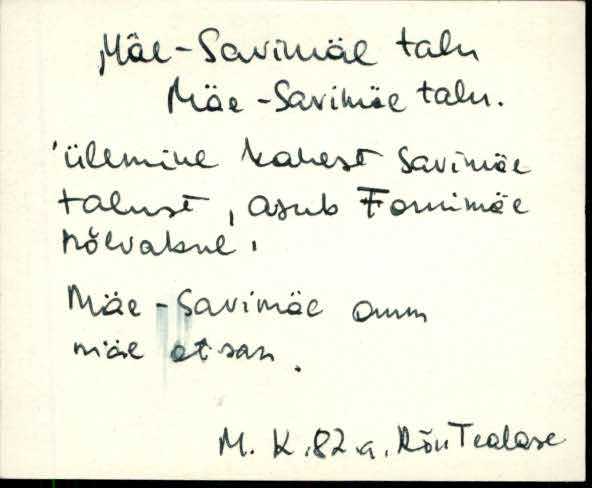 Mäe-Savimäe talu
Mäe-Savimäe talu.
'ülemine kahest Savimäe
talust, asub Tornimäe
nõlvakul.
Mäe-Savimäe omm
mäe otsan.
M. K. 82.a. Rõn Tealase